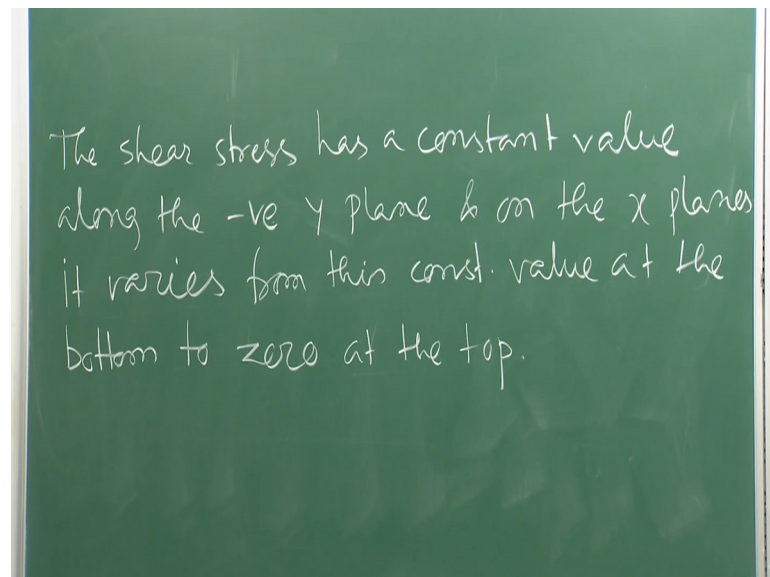 The shear stress has a constant value
along the -ve y plane & on the x planes
it varies from this const. value at the
bottom to zero at the top.